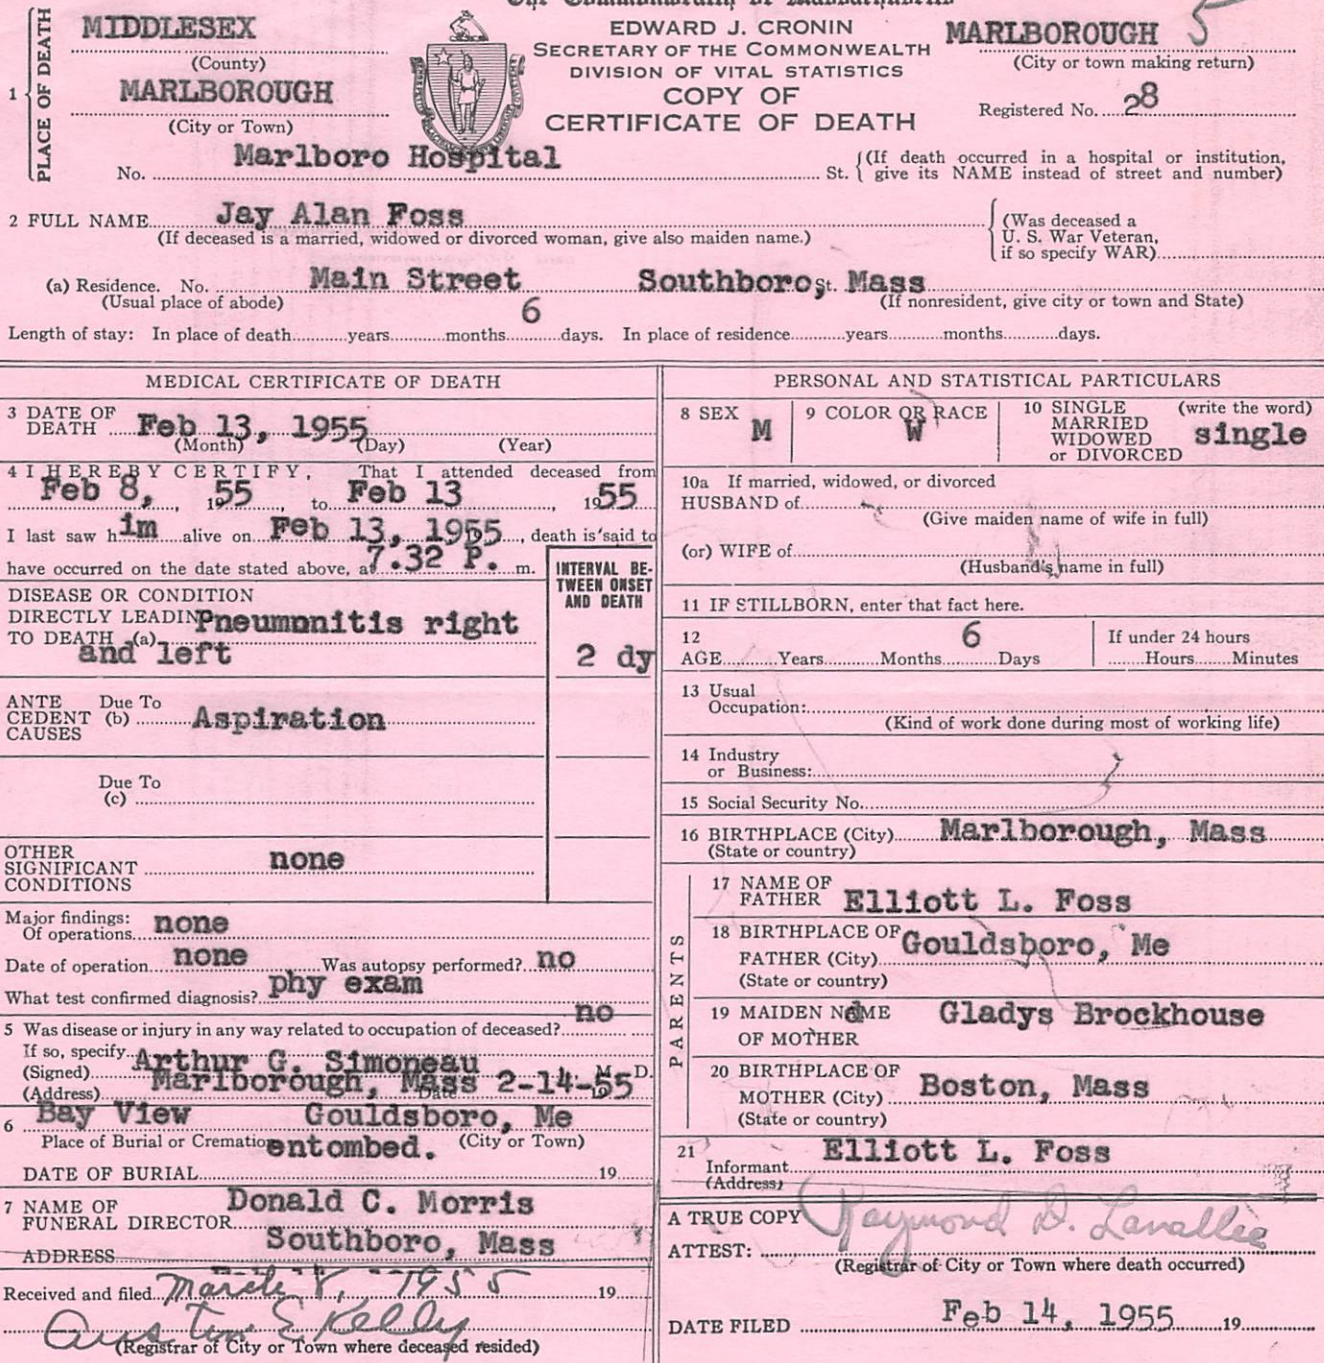 MIDDLESEX
(County)
MARLBOROUGH
(City or Town)
1 PLACE OF DEATH
The Commonwealth of Massachusetts
EDWARD J. CRONIN
SECRETARY OF THE COMMONWEALTH
DIVISION OF VITAL STATISTICS
COPY OF
CERTIFICATE OF DEATH
MARLBOROUGH 5
(City or town making return)
Registered No. 28
No. Marlboro Hospital St. {(If death occurred in a hospital or institution,
give its NAME instead of street and number)
2 FULL NAME Jay Alan Foss
(If deceased is a married, widowed or divorced woman, give also maiden name.)
(Was deceased a
U. S. War Veteran,
if so specify WAR)
(a) Residence. No. Main Street Southboro, St. Mass
(Usual place of abode) (If nonresident, give city or town and State)
Length of stay: In place of death years months 6 days. In place of residence years months days.
MEDICAL CERTIFICATE OF DEATH
3 DATE OF
DEATH Feb 13, 1955
(Month) (Day) (Year)
4 I HEREBY CERTIFY, That I attended deceased from
Feb 8, 1955, to Feb 13 1955
I last saw him alive on Feb 13, 1955, death is said to
have occurred on the date stated above, at 7.32 P. m.
INTERVAL BE-
TWEEN ONSET
AND DEATH
DISEASE OR CONDITION
DIRECTLY LEADING Pneumonitis right
TO DEATH (a) and left
2 dy
ANTE
CEDENT
CAUSES
Due To
(b) Aspiration
Due To
(c)
OTHER
SIGNIFICANT none
CONDITIONS
Major findings:
Of operations none
Date of operation none Was autopsy performed? no
What test confirmed diagnosis? phy exam
5 Was disease or injury in any way related to occupation of deceased? no
If so, specify
(Signed) Arthur G. Simoneau M. D.
(Address) Marlborough, Mass Date 2-14-1955
6 Bay View Gouldsboro, Me
Place of Burial or Cremation (City or Town)
entombed.
DATE OF BURIAL 19
7 NAME OF
FUNERAL DIRECTOR Donald C. Morris
ADDRESS Southboro, Mass
Received and filed March 8, 1955 19
Austin E. Kelly
(Registrar of City or Town where deceased resided)
PERSONAL AND STATISTICAL PARTICULARS
8 SEX M
9 COLOR OR RACE W
10 SINGLE (write the word)
MARRIED
WIDOWED single
or DIVORCED
10a If married, widowed, or divorced
HUSBAND of
(Give maiden name of wife in full)
(or) WIFE of
(Husband's name in full)
11 IF STILLBORN, enter that fact here.
12
AGE Years Months 6 Days
If under 24 hours
Hours Minutes
13 Usual
Occupation:
(Kind of work done during most of working life)
14 Industry
or Business:
15 Social Security No.
16 BIRTHPLACE (City) Marlborough, Mass
(State or country)
PARENTS
17 NAME OF
FATHER Elliott L. Foss
18 BIRTHPLACE OF
FATHER (City) Gouldsboro, Me
(State or country)
19 MAIDEN NAME
OF MOTHER Gladys Brockhouse
20 BIRTHPLACE OF
MOTHER (City) Boston, Mass
(State or country)
21
Informant Elliott L. Foss
(Address)
A TRUE COPY
ATTEST: Raymond D. Lavallee
(Registrar of City or Town where death occurred)
DATE FILED Feb 14, 1955 19